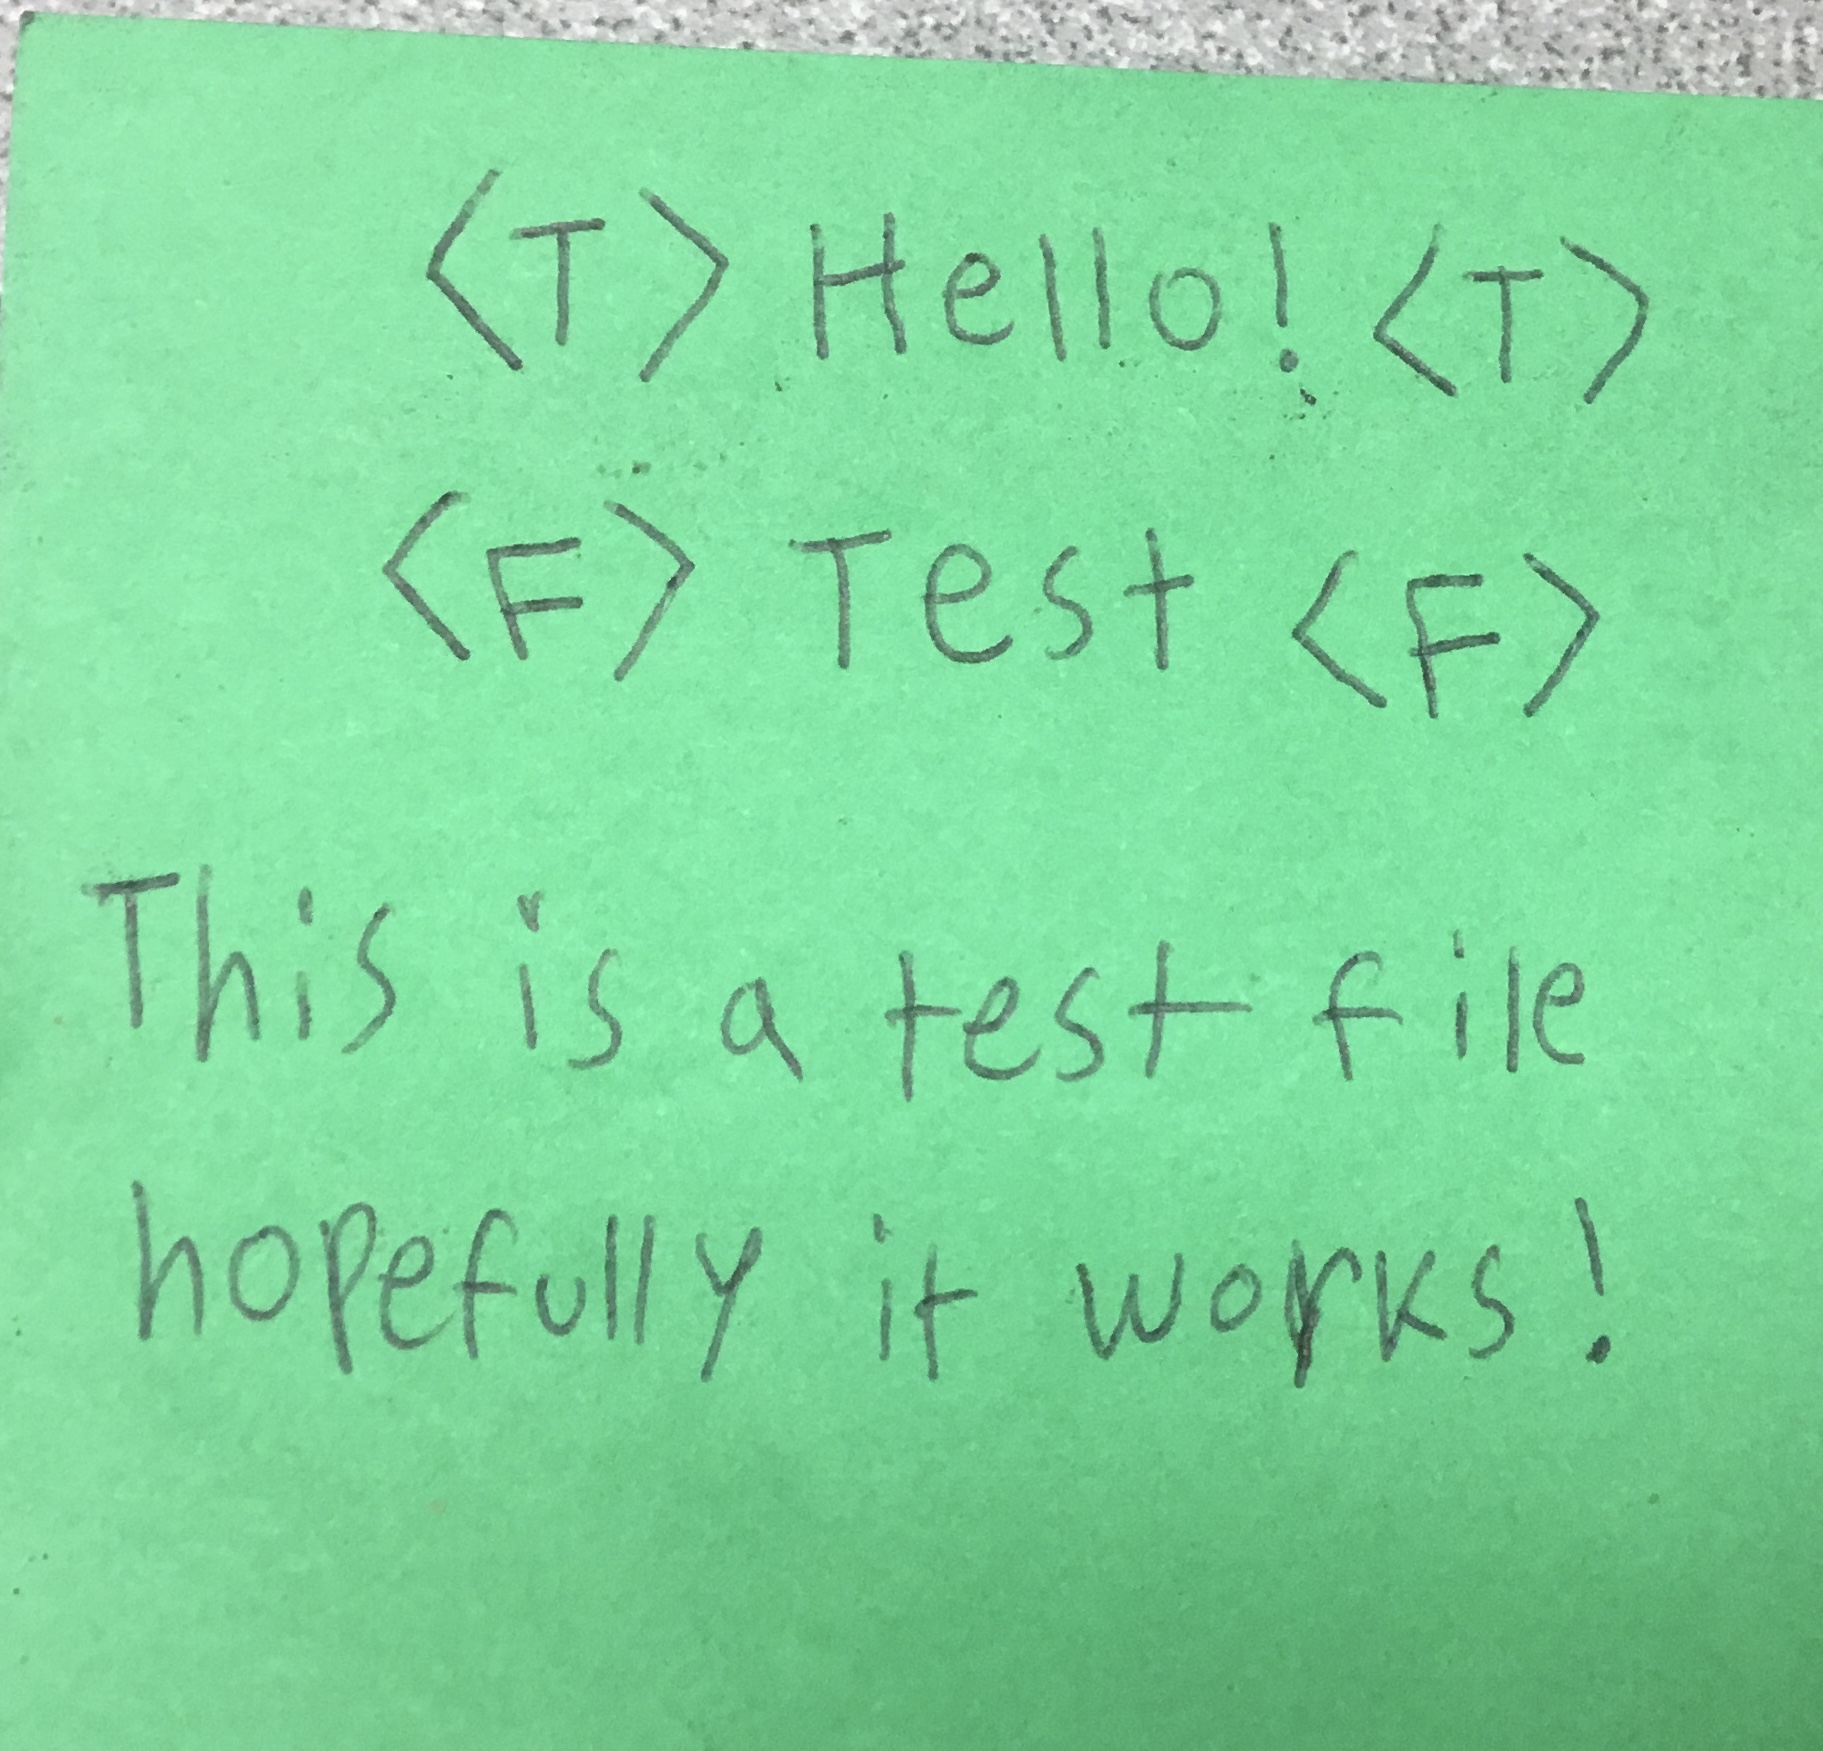 <T> Hello! <T>
<F> Test <F>
This is a test file
hopefully it works!